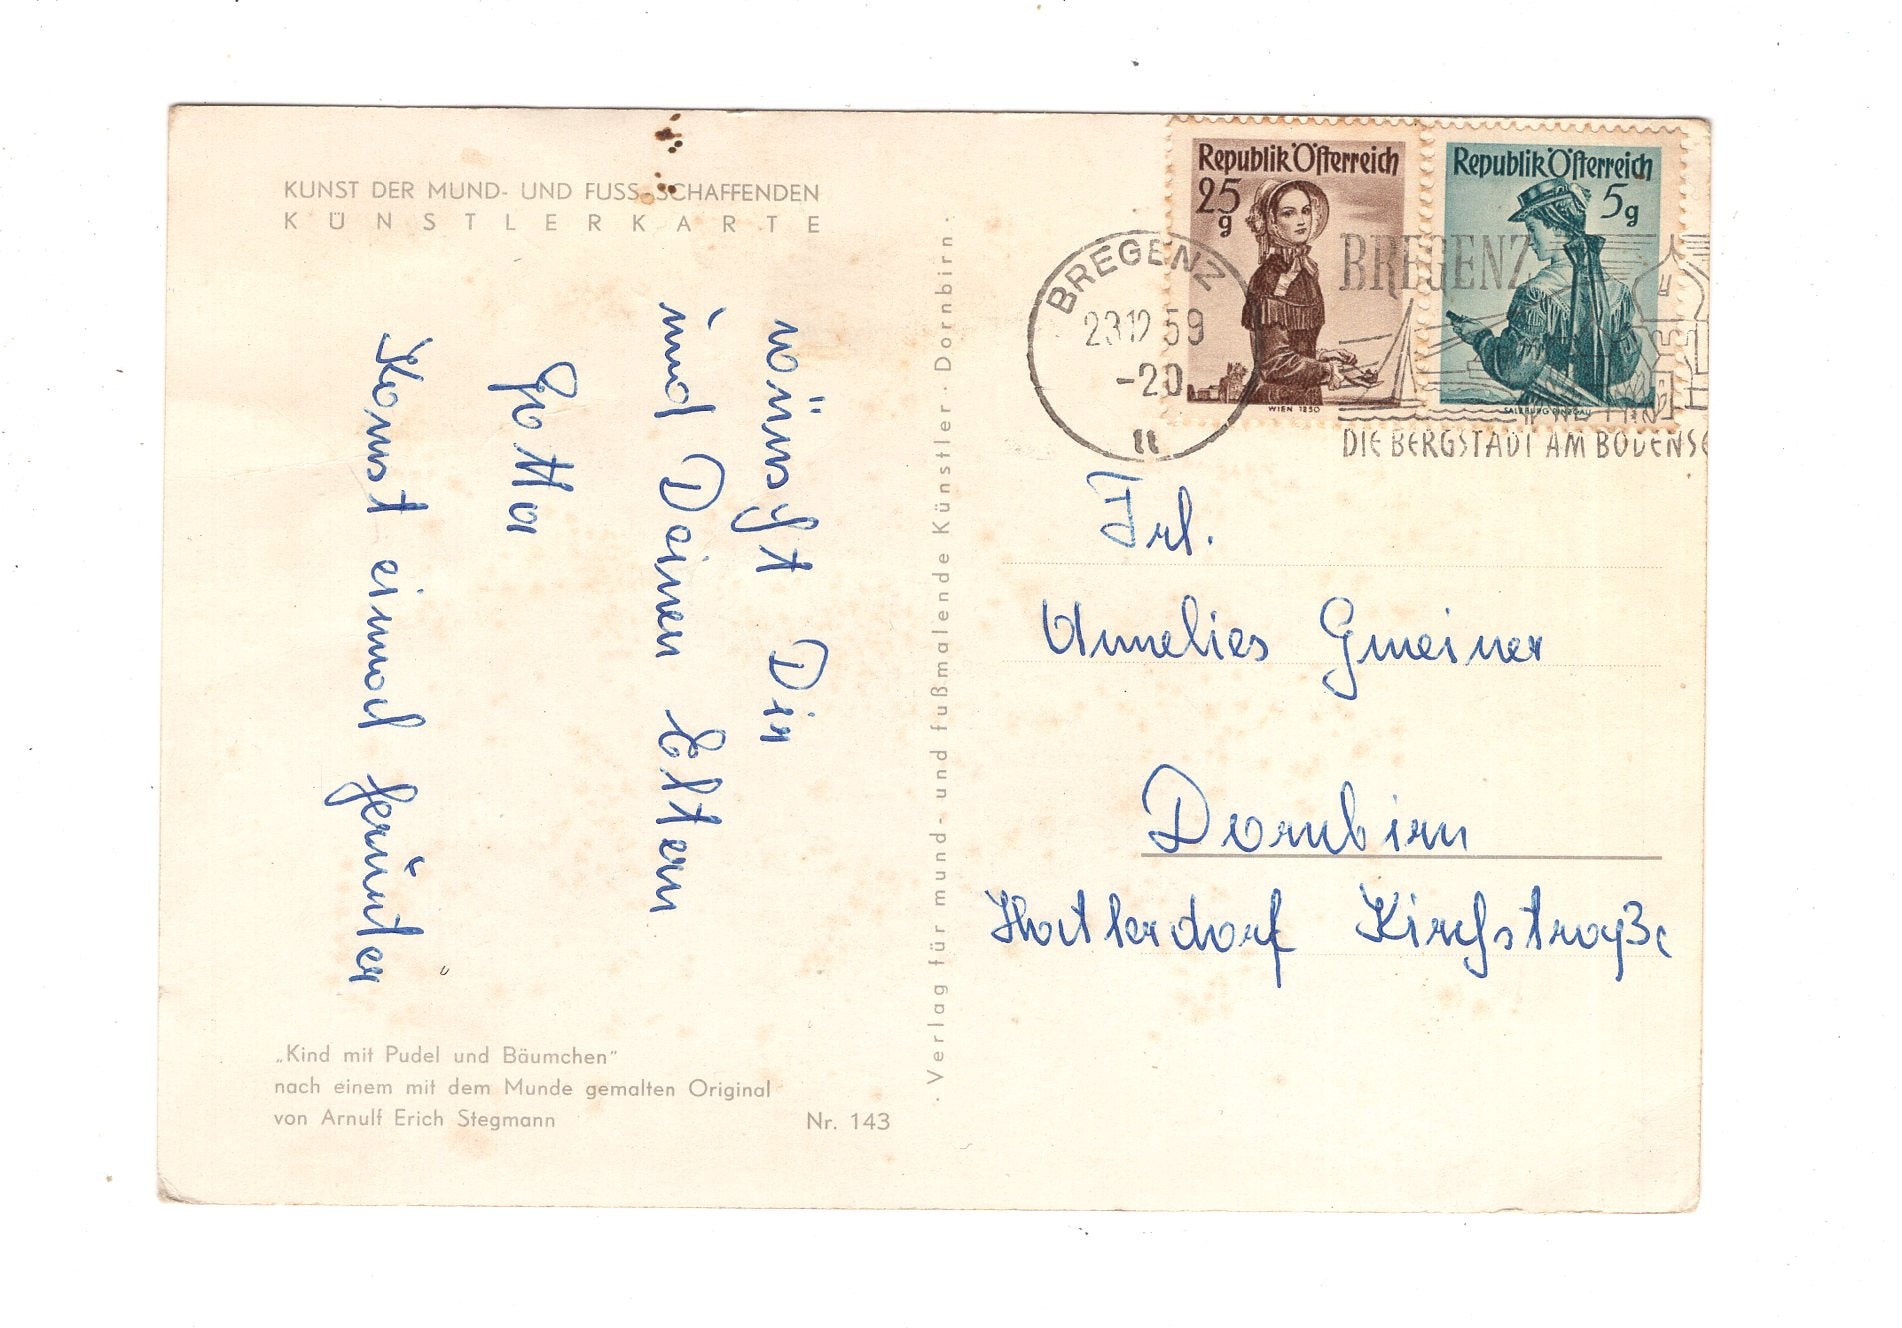 KUNST DER MUND- UND FUSS-SCHAFFENDEN
KÜNSTLERKARTE
wünscht Dir
und Deinen Eltern
Gotta
Komst einmal herunter
„Kind mit Pudel und Bäumchen"
nach einem mit dem Munde gemalten Original
von Arnulf Erich Stegmann
Nr. 143
· Verlag für mund- und fußmalende Künstler · Dornbirn ·
Republik Österreich
25 g
WIEN 1850
Republik Österreich
5 g
SALZBURG PINZGAU
BREGENZ
23.12.59
-20
BREGENZ
DIE BERGSTADT AM BODENSE
Frl.
Annelies Gmeiner
Dornbirn
Hatlerdorf Kirchstraße